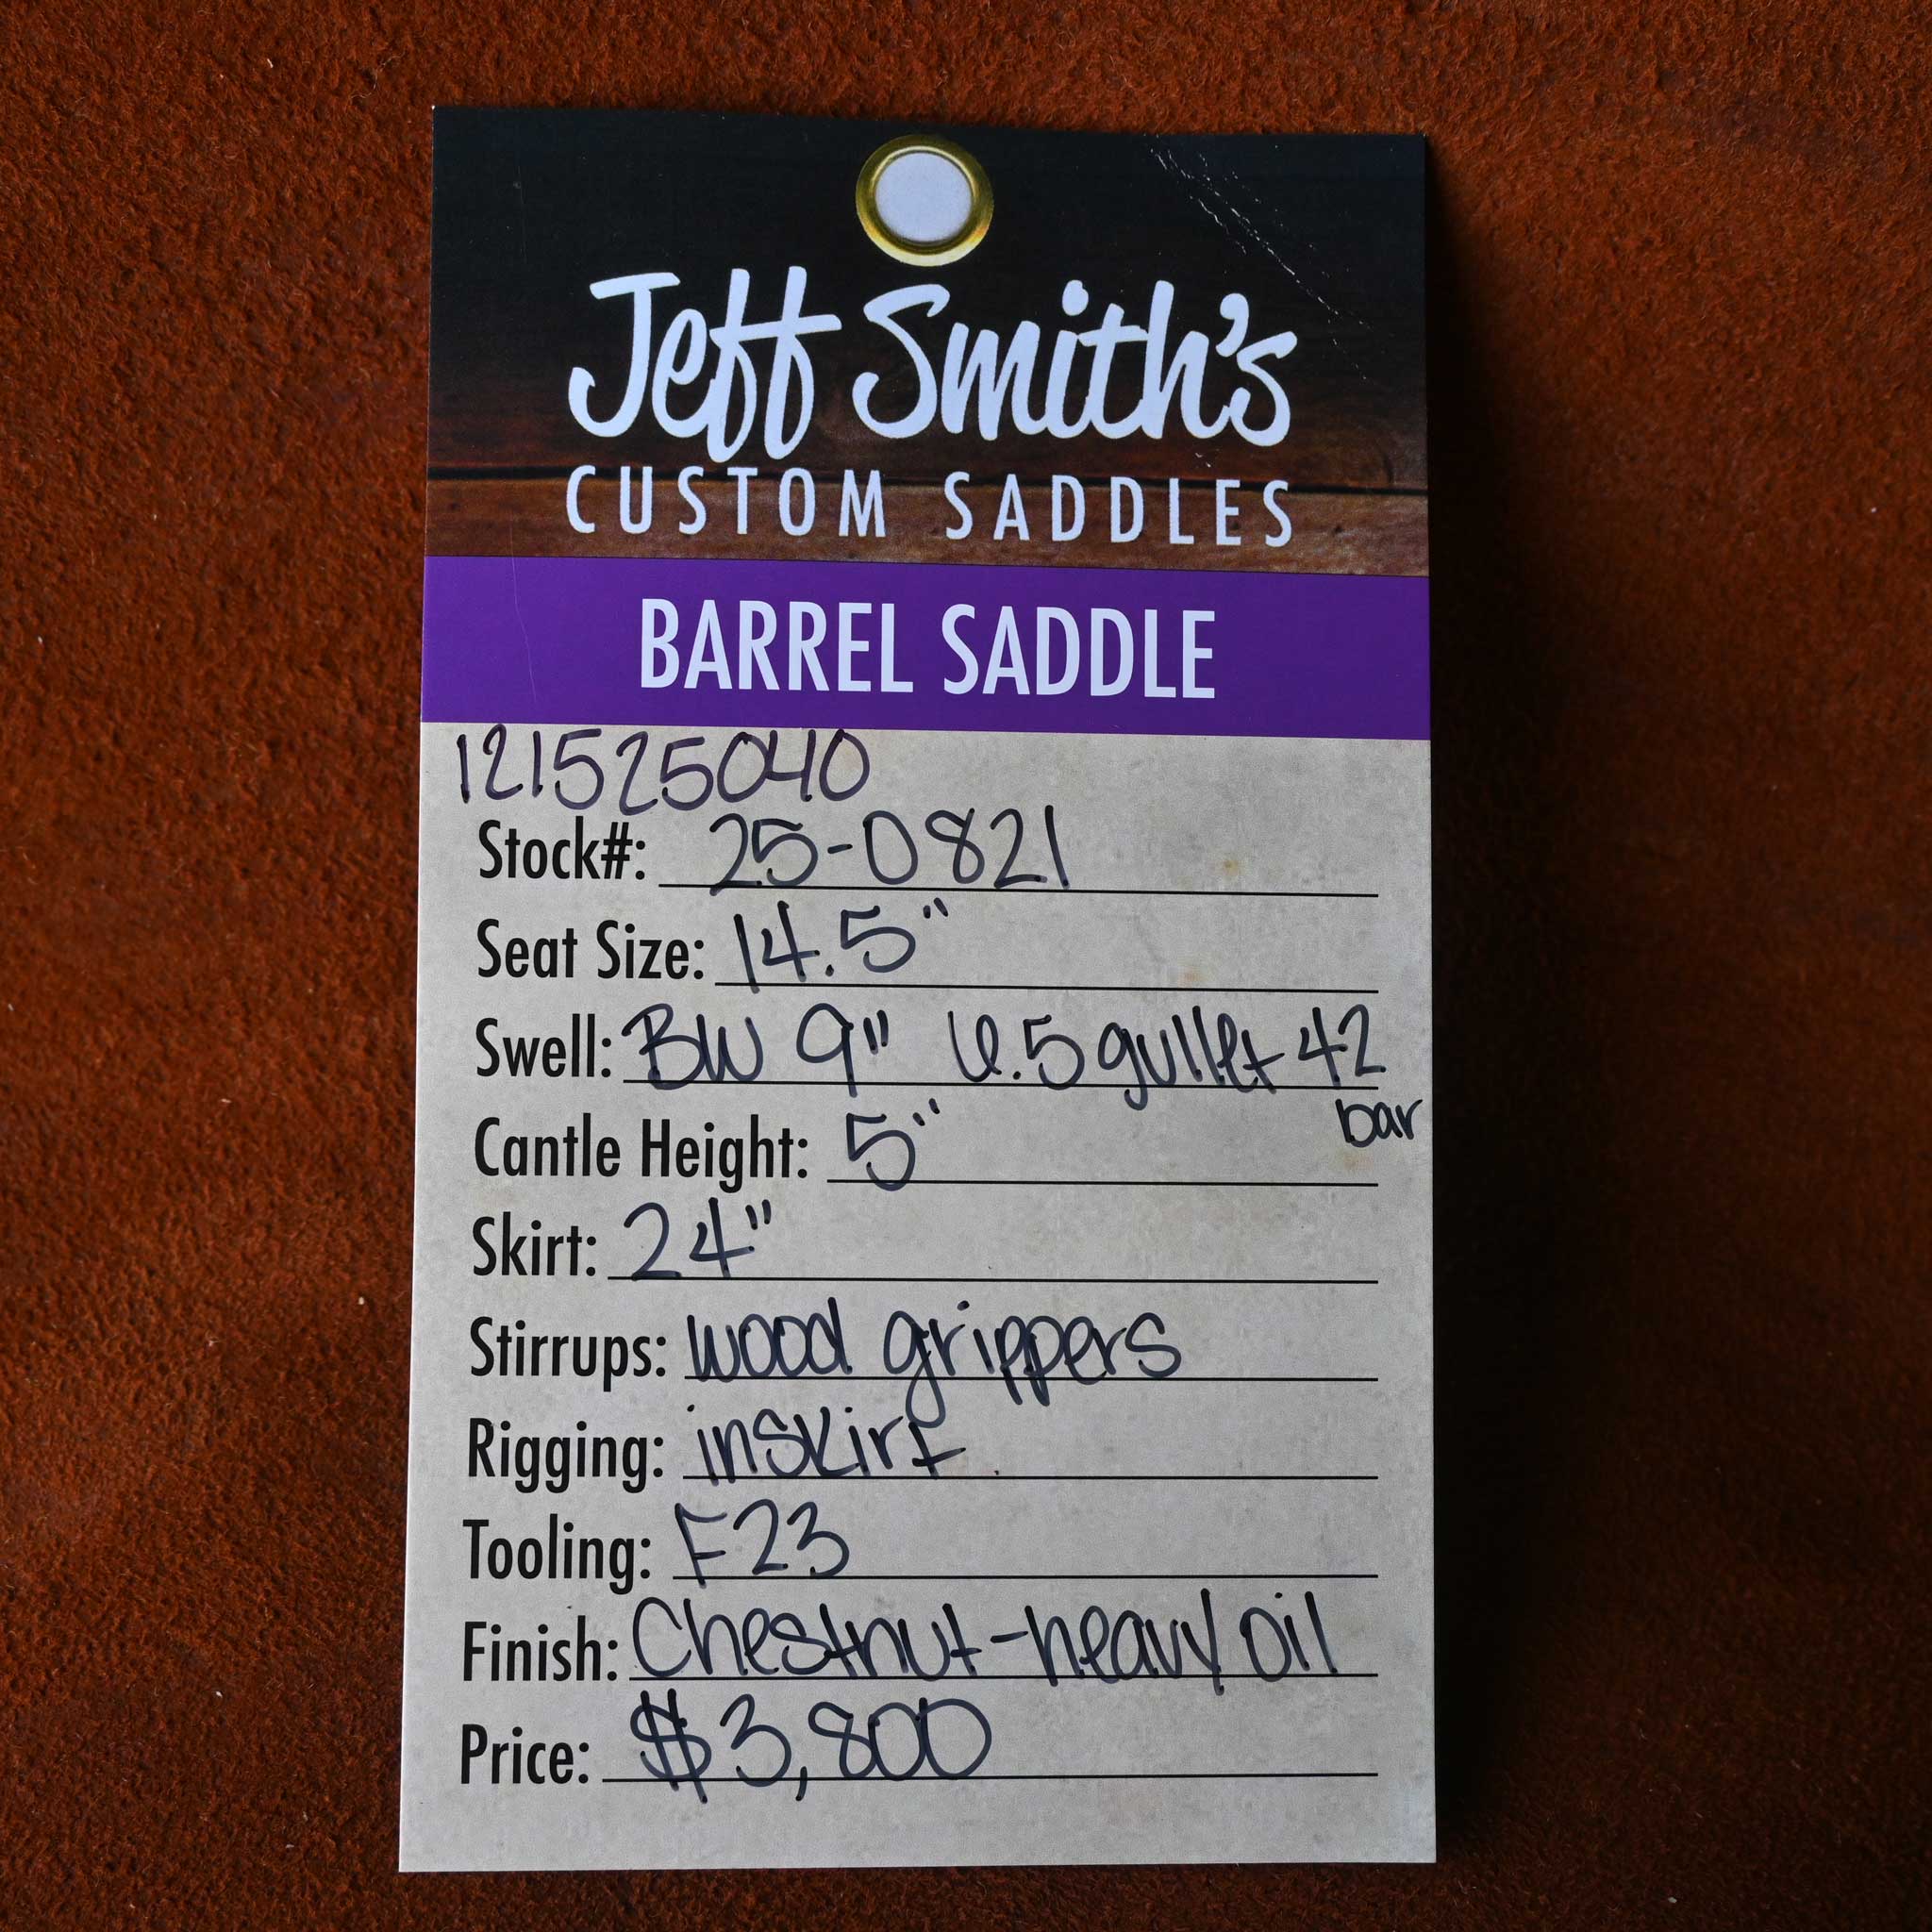 Jeff Smith's
CUSTOM SADDLES
BARREL SADDLE
121525040
Stock#: 25-0821
Seat Size: 14.5"
Swell: BW 9" 6.5 gullet 42
bar
Cantle Height: 5"
Skirt: 24"
Stirrups: wood grippers
Rigging: inskirt
Tooling: F23
Finish: Chestnut-heavy oil
Price: $3,800